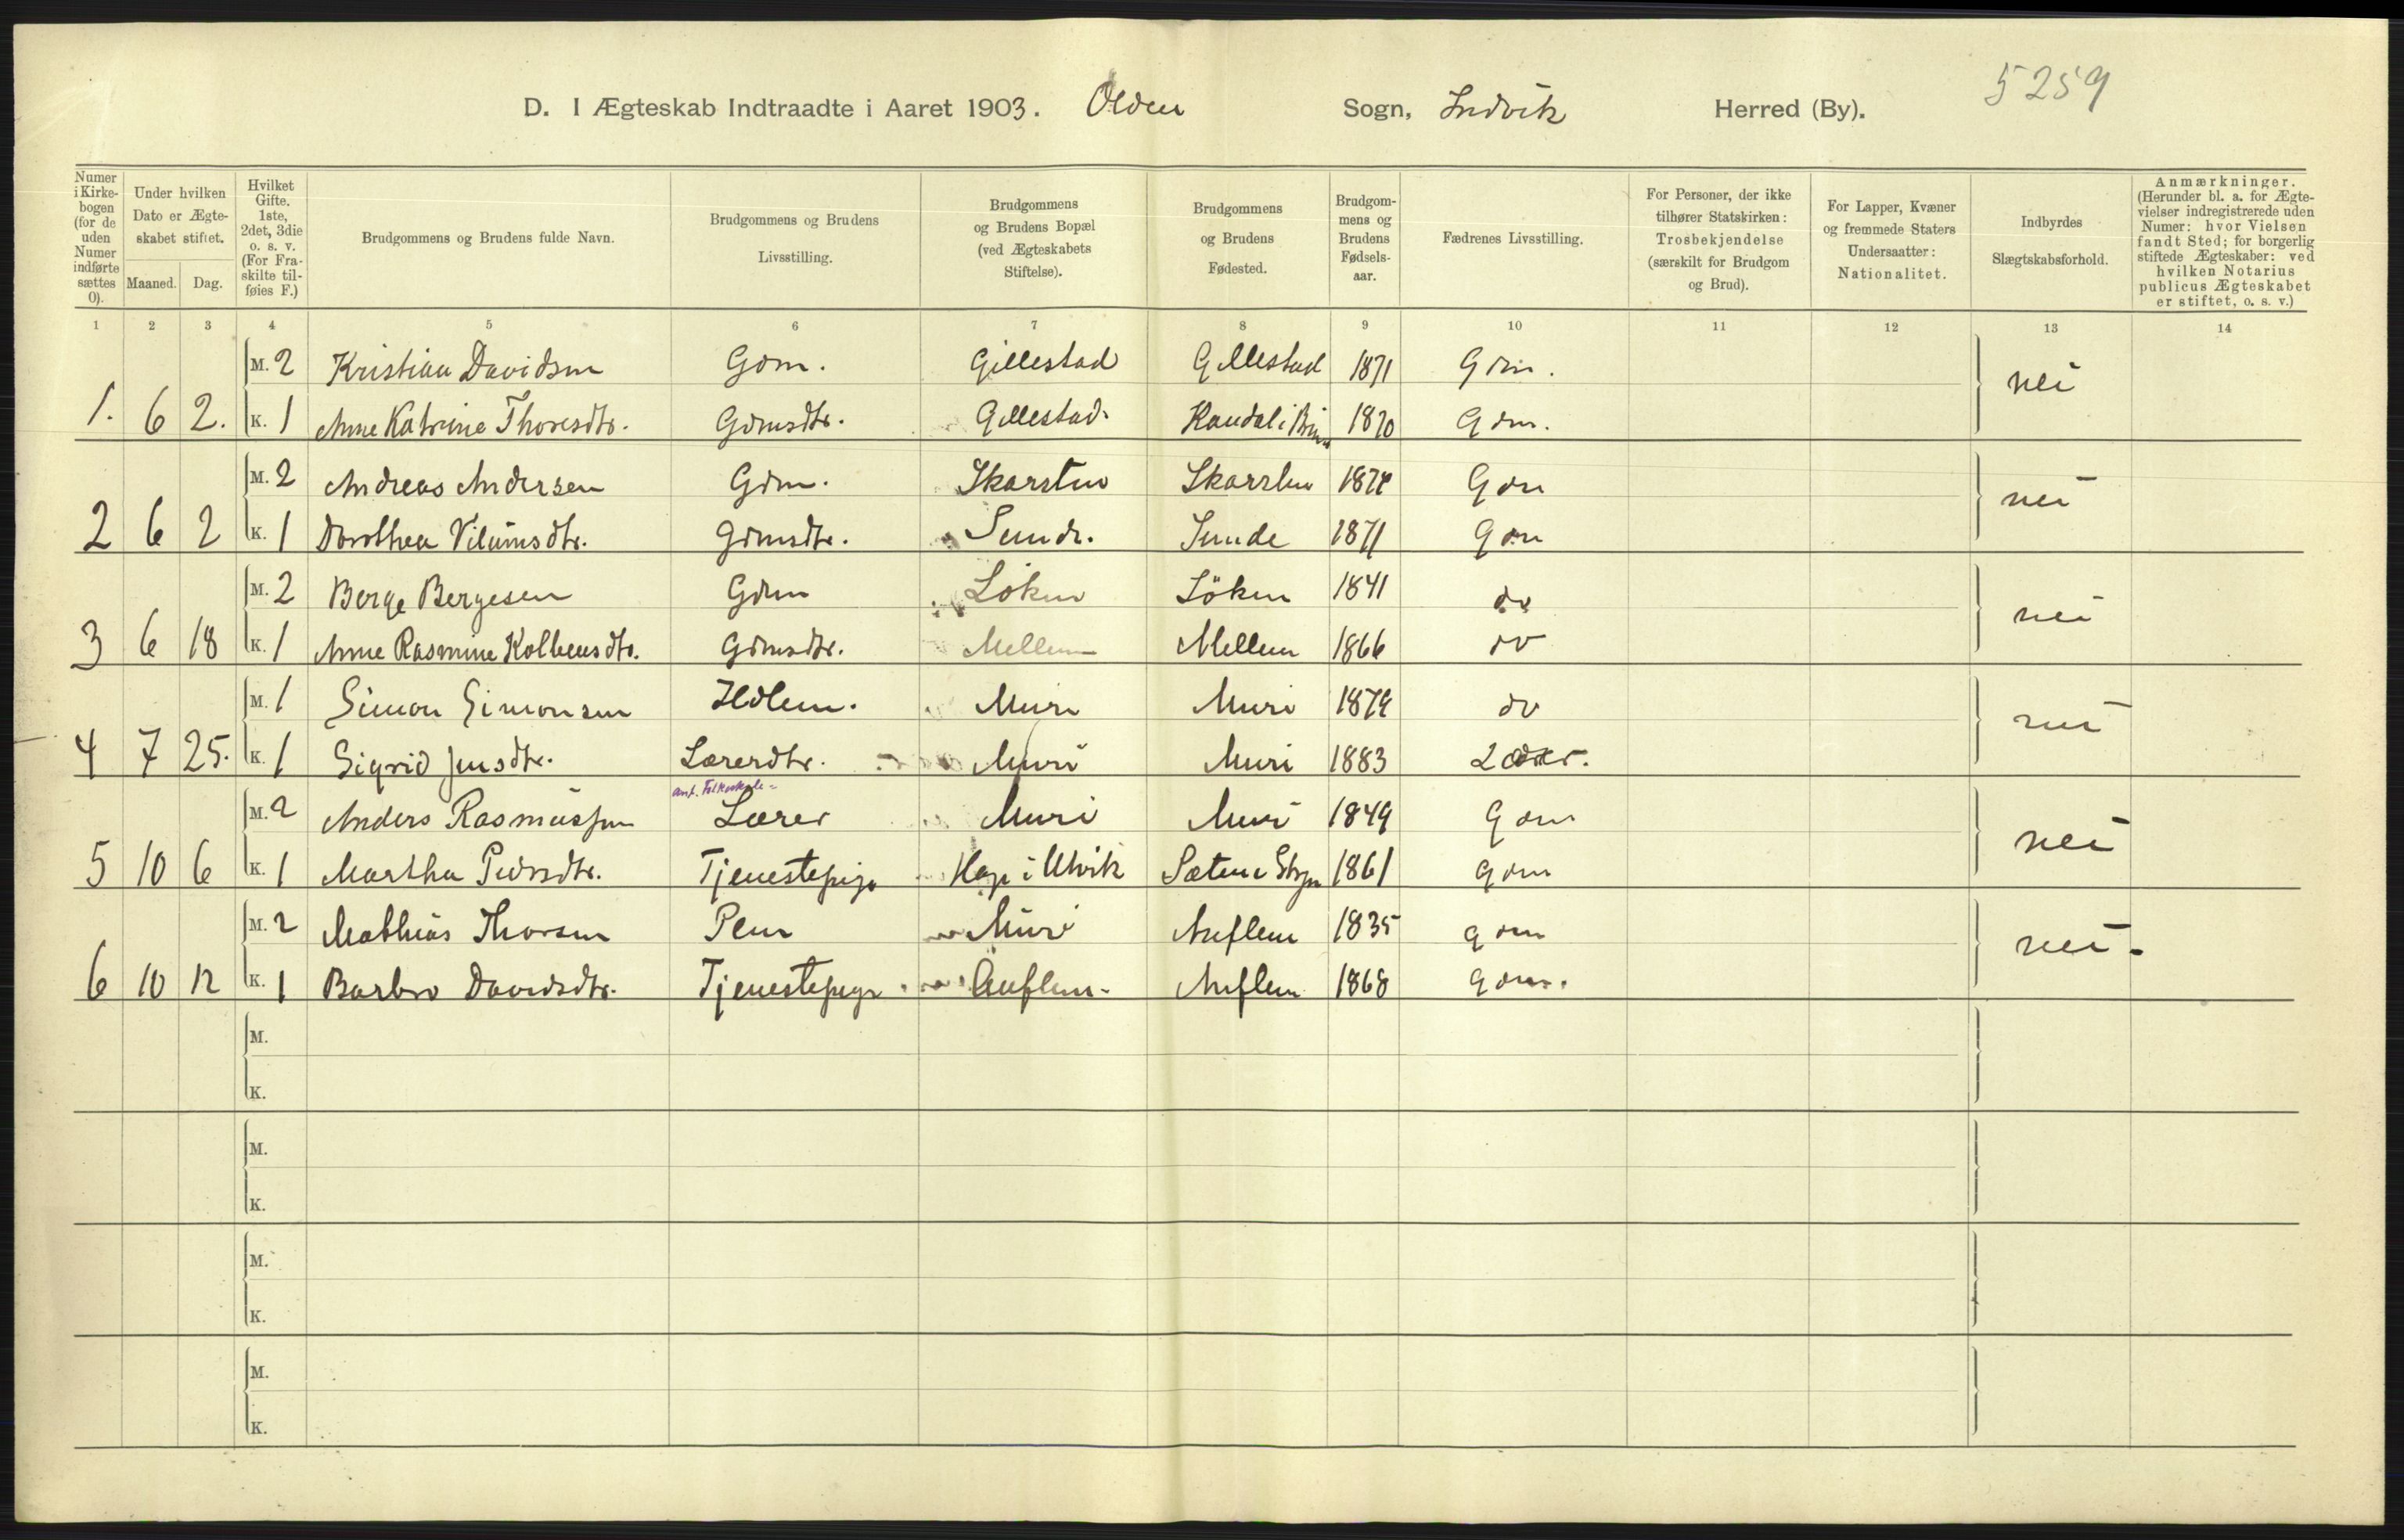 5259
D. I Ægteskab Indtraadte i Aaret 1903. Olden Sogn, Indvik Herred (By).
Numer i Kirkebogen (for de uden Numer indførte sættes 0).
Under hvilken Dato er Ægteskabet stiftet.
Maaned. Dag.
Hvilket Gifte. 1ste, 2det, 3die o. s. v. (For Fraskilte tilføies F.)
Brudgommens og Brudens fulde Navn.
Brudgommens og Brudens Livsstilling.
Brudgommens og Brudens Bopæl (ved Ægteskabets Stiftelse).
Brudgommens og Brudens Fødested.
Brudgommens og Brudens Fødselsaar.
Fædrenes Livsstilling.
For Personer, der ikke tilhører Statskirken: Trosbekjendelse (særskilt for Brudgom og Brud).
For Lapper, Kvæner og fremmede Staters Undersaatter: Nationalitet.
Indbyrdes Slægtskabsforhold.
Anmærkninger. (Herunder bl. a. for Ægtevielser indregistrerede uden Numer: hvor Vielsen fandt Sted; for borgerlig stiftede Ægteskaber: ved hvilken Notarius publicus Ægteskabet er stiftet, o. s. v.)
1 2 3 4 5 6 7 8 9 10 11 12 13 14
M. 2 Kristian Davidsen Gdm. Gillestad Gillestad 1871 Gdm. nei
1. 6 2. K. 1 Anne Katrine Thoresdtr. Gdmsdtr. Gillestad Kandal i 1870 Gdm.
M. 2 Andreas Andersen Gdm. Skarsten Skarsten Gdm nei
2 6 2 K. 1 Dorthea Gdmsdtr. Sunde. Sunde 1871 Gdm
M. 2 Berge Bergesen Gdm Löken Löken 1841 do nei
3 6 18 K. 1 Anne Rasmine Kolbensdtr. Gdmsdtr. Mellem Mellem 1866 do
M. 1 Simon Simonsen Muri Muri 1879 do nei
4 7 25. K. 1 Sigrid Jensdtr. Lærerdtr. Muri Muri 1883 Lærer.
ant. Folkeskole-
M. 2 Anders Rasmussen Lærer Muri Muri 1849 Gdm nei
5 10 6 K. 1 Martha Pedersdtr. Tjenestepige i Utvik Sæten i Stryn 1861 Gdm
M. 2 Mathias Thorsen Muri Auflem 1835 gdm nei-
6 10 12 K. 1 Barbro Davidsdtr. Tjenestepige. Auflem- Auflem 1868 gdm.
M.
K.
M.
K.
M.
K.
M.
K.